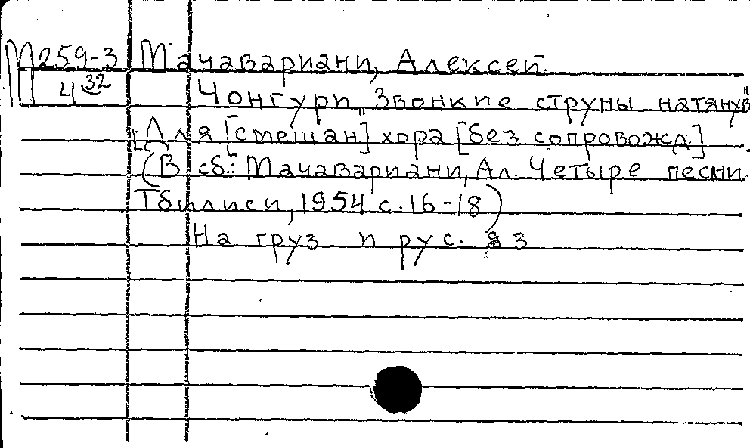 М259-3 Мачавариани, Алексей.
4 32 Чонгури „Звонкие струны натянув"
[Для [смешан] хора [без сопровожд]
(В сб: Мачавариани, Ал. Четыре песни.
Тбилиси, 1954 с. 16-18)
На груз и рус. яз